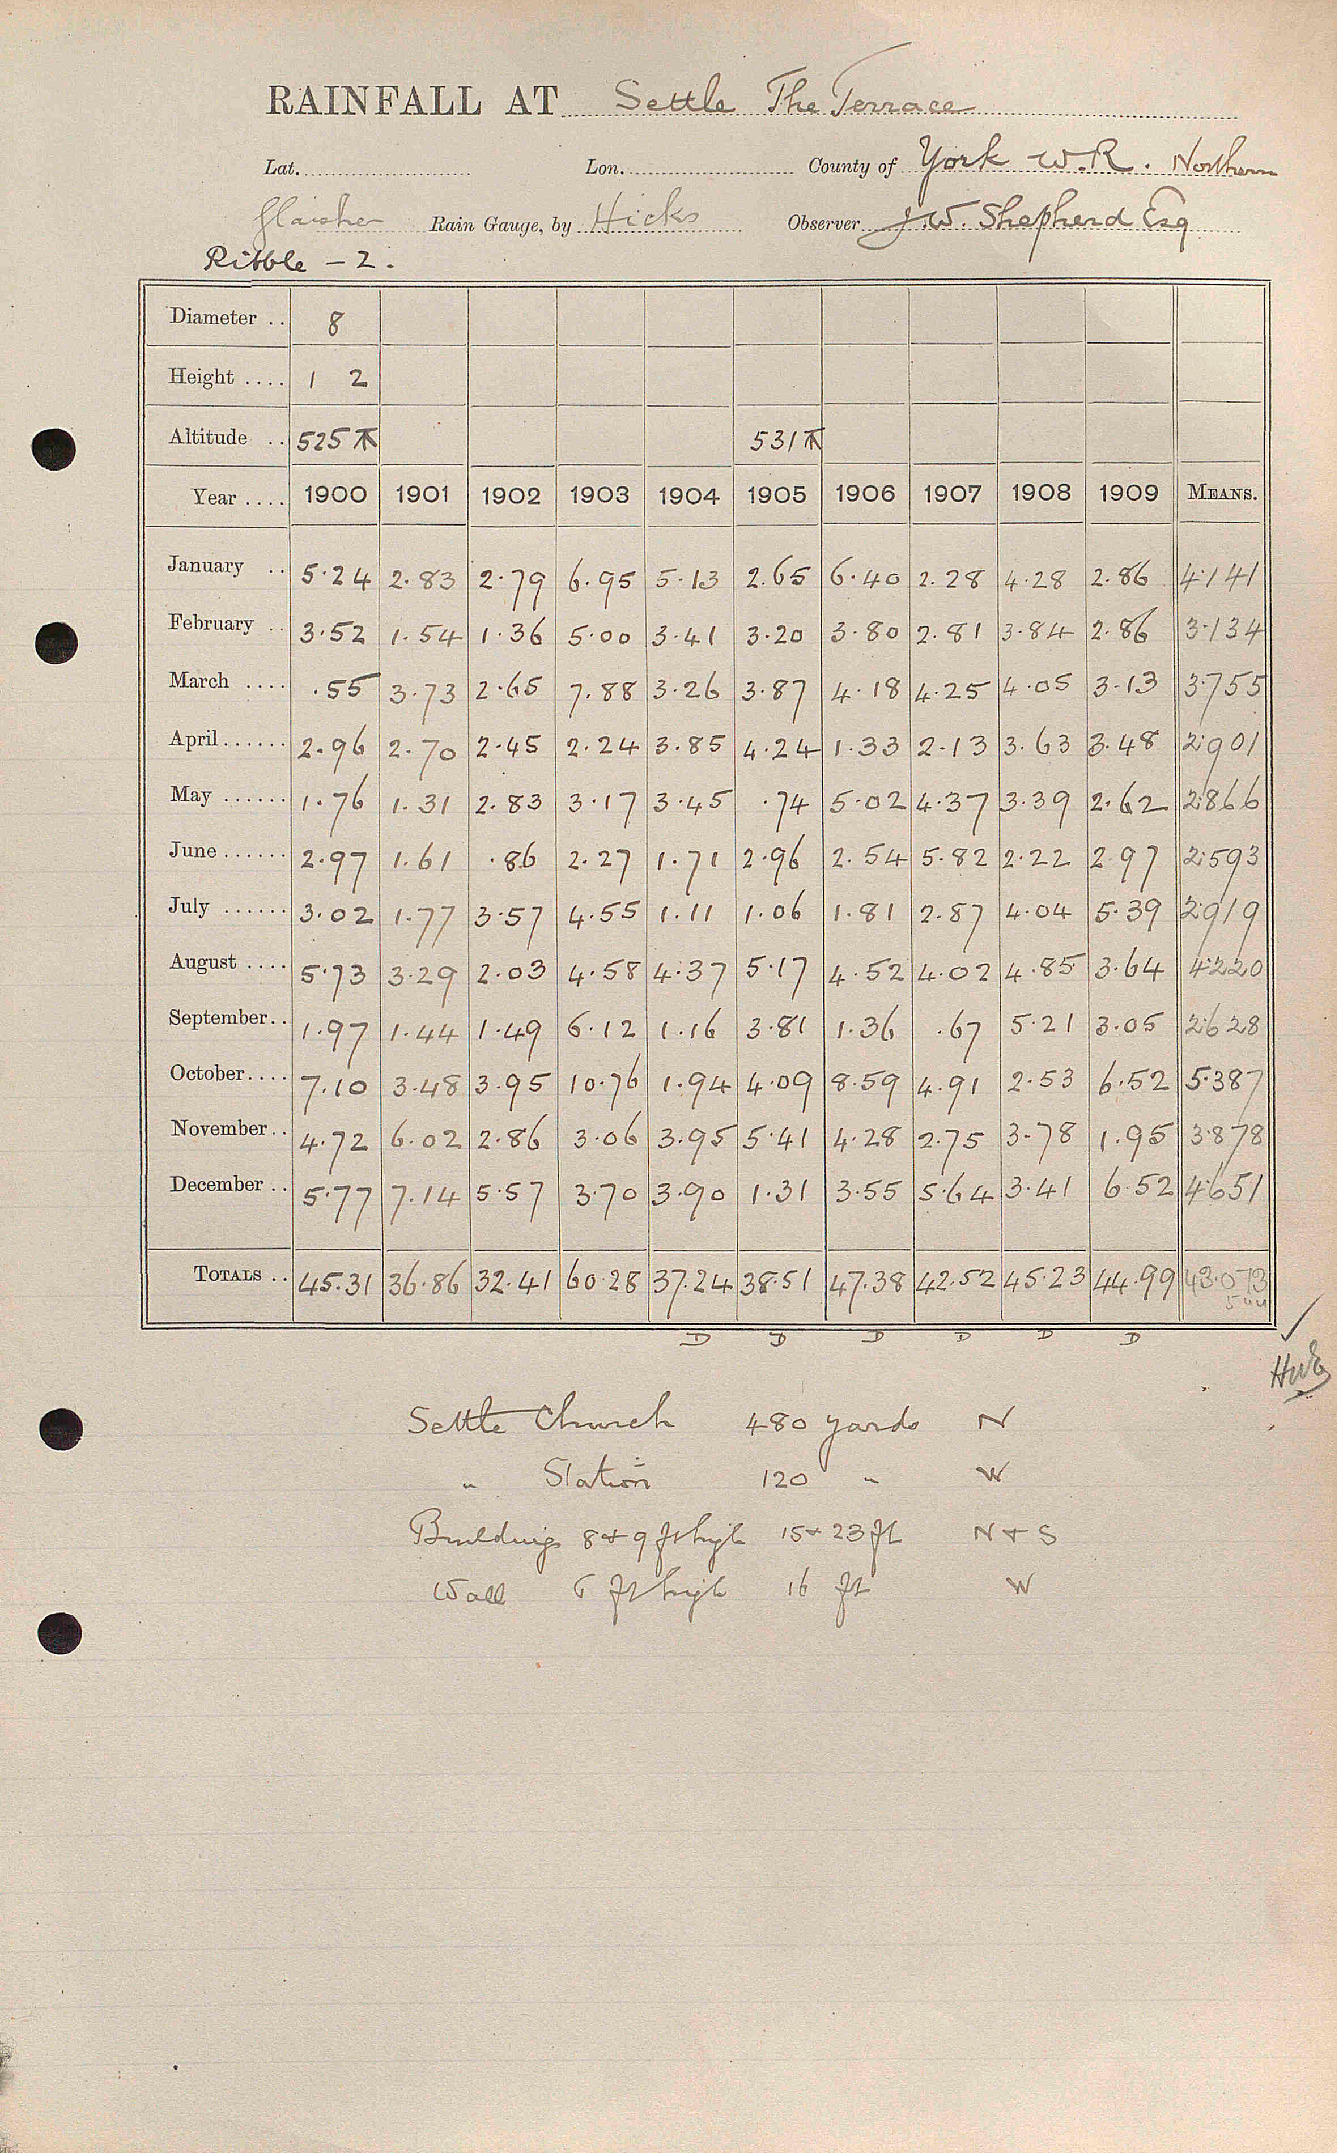 RAINFALL AT Settle The Terrace
Lat. Lon. County of York W.R. Northern
Glaisher Rain Gauge, by Hicks Observer J.W. Shepherd Esq
Ribble - 2.
Diameter .. 8
Height .... 1 2
Altitude .. 525 531
Year .... 1900 1901 1902 1903 1904 1905 1906 1907 1908 1909 MEANS.
January .. 5.24 2.83 2.79 6.95 5.13 2.65 6.40 2.28 4.28 2.86 4.141
February .. 3.52 1.54 1.36 5.00 3.41 3.20 3.80 2.81 3.84 2.86 3.134
March .... .55 3.73 2.65 7.88 3.26 3.87 4.18 4.25 4.05 3.13 3.755
April...... 2.96 2.70 2.45 2.24 3.85 4.24 1.33 2.13 3.63 3.48 2.901
May ...... 1.76 1.31 2.83 3.17 3.45 .74 5.02 4.37 3.39 2.62 2.866
June ...... 2.97 1.61 .86 2.27 1.71 2.96 2.54 5.82 2.22 2.97 2.593
July ...... 3.02 1.77 3.57 4.55 1.11 1.06 1.81 2.87 4.04 5.39 2.919
August .... 5.73 3.29 2.03 4.58 4.37 5.17 4.52 4.02 4.85 3.64 4.220
September.. 1.97 1.44 1.49 6.12 1.16 3.81 1.36 .67 5.21 3.05 2.628
October.... 7.10 3.48 3.95 10.76 1.94 4.09 8.59 4.91 2.53 6.52 5.387
November.. 4.72 6.02 2.86 3.06 3.95 5.41 4.28 2.75 3.78 1.95 3.878
December .. 5.77 7.14 5.57 3.70 3.90 1.31 3.55 5.64 3.41 6.52 4.651
TOTALS .. 45.31 36.86 32.41 60.28 37.24 38.51 47.38 42.52 45.23 44.99 43.073
D D D D D D
Settle Church 480 yards N
" Station 120 " W
Buildings 8 + 9 ft high 15 + 23 ft N + S
Wall 6 ft high 16 ft W